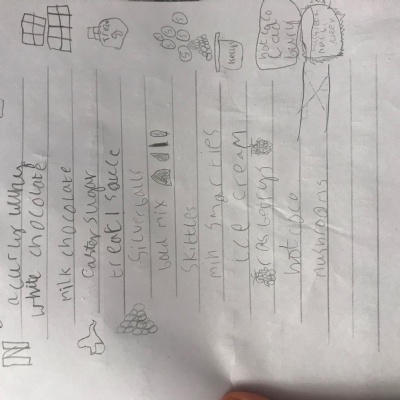 a curly wurly
white chocolate
milk chocolate
Caster sugar
treakl sauce
Silverballs
skittles
min smarties
ice cream
rasberrys
hot choco
mushrooms
hot choco
cad
bury